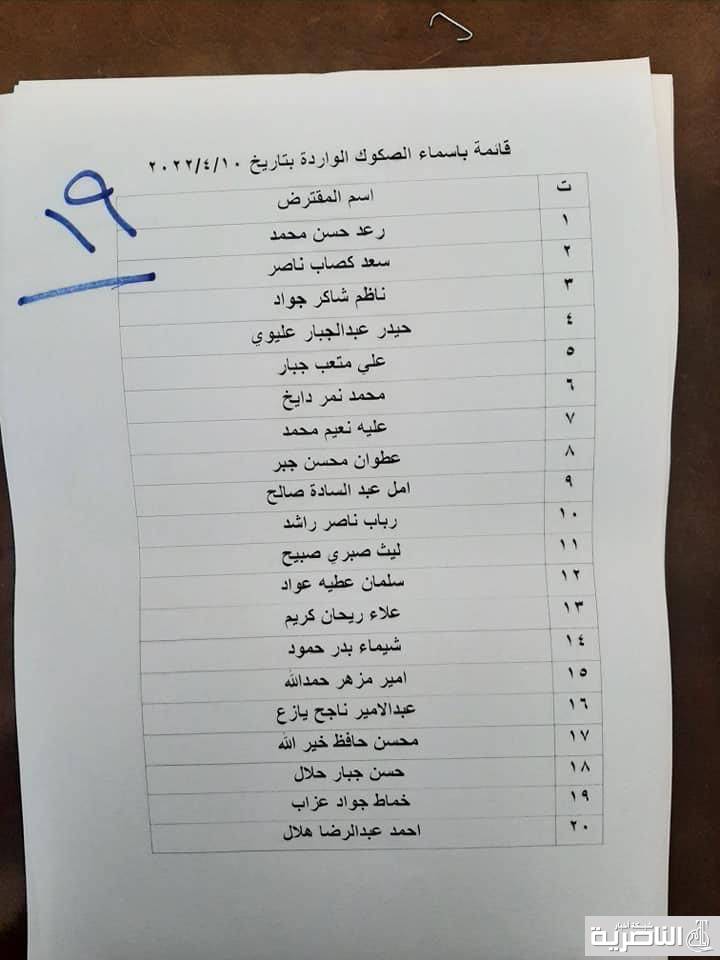 قائمة باسماء الصكوك الواردة بتاريخ ٢٠٢٢/٤/١٠
١٩
ت اسم المقترض
١ رعد حسن محمد
٢ سعد كصاب ناصر
٣ ناظم شاكر جواد
٤ حيدر عبدالجبار عليوي
٥ علي متعب جبار
٦ محمد نمر دايخ
٧ عليه نعيم محمد
٨ عطوان محسن جبر
٩ امل عبد السادة صالح
١٠ رباب ناصر راشد
١١ ليث صبري صبيح
١٢ سلمان عطيه عواد
١٣ علاء ريحان كريم
١٤ شيماء بدر حمود
١٥ امير مزهر حمدالله
١٦ عبدالامير ناجح يازع
١٧ محسن حافظ خير الله
١٨ حسن جبار حلال
١٩ خماط جواد عزاب
٢٠ احمد عبدالرضا هلال
شبكة اخبار
الناصرية